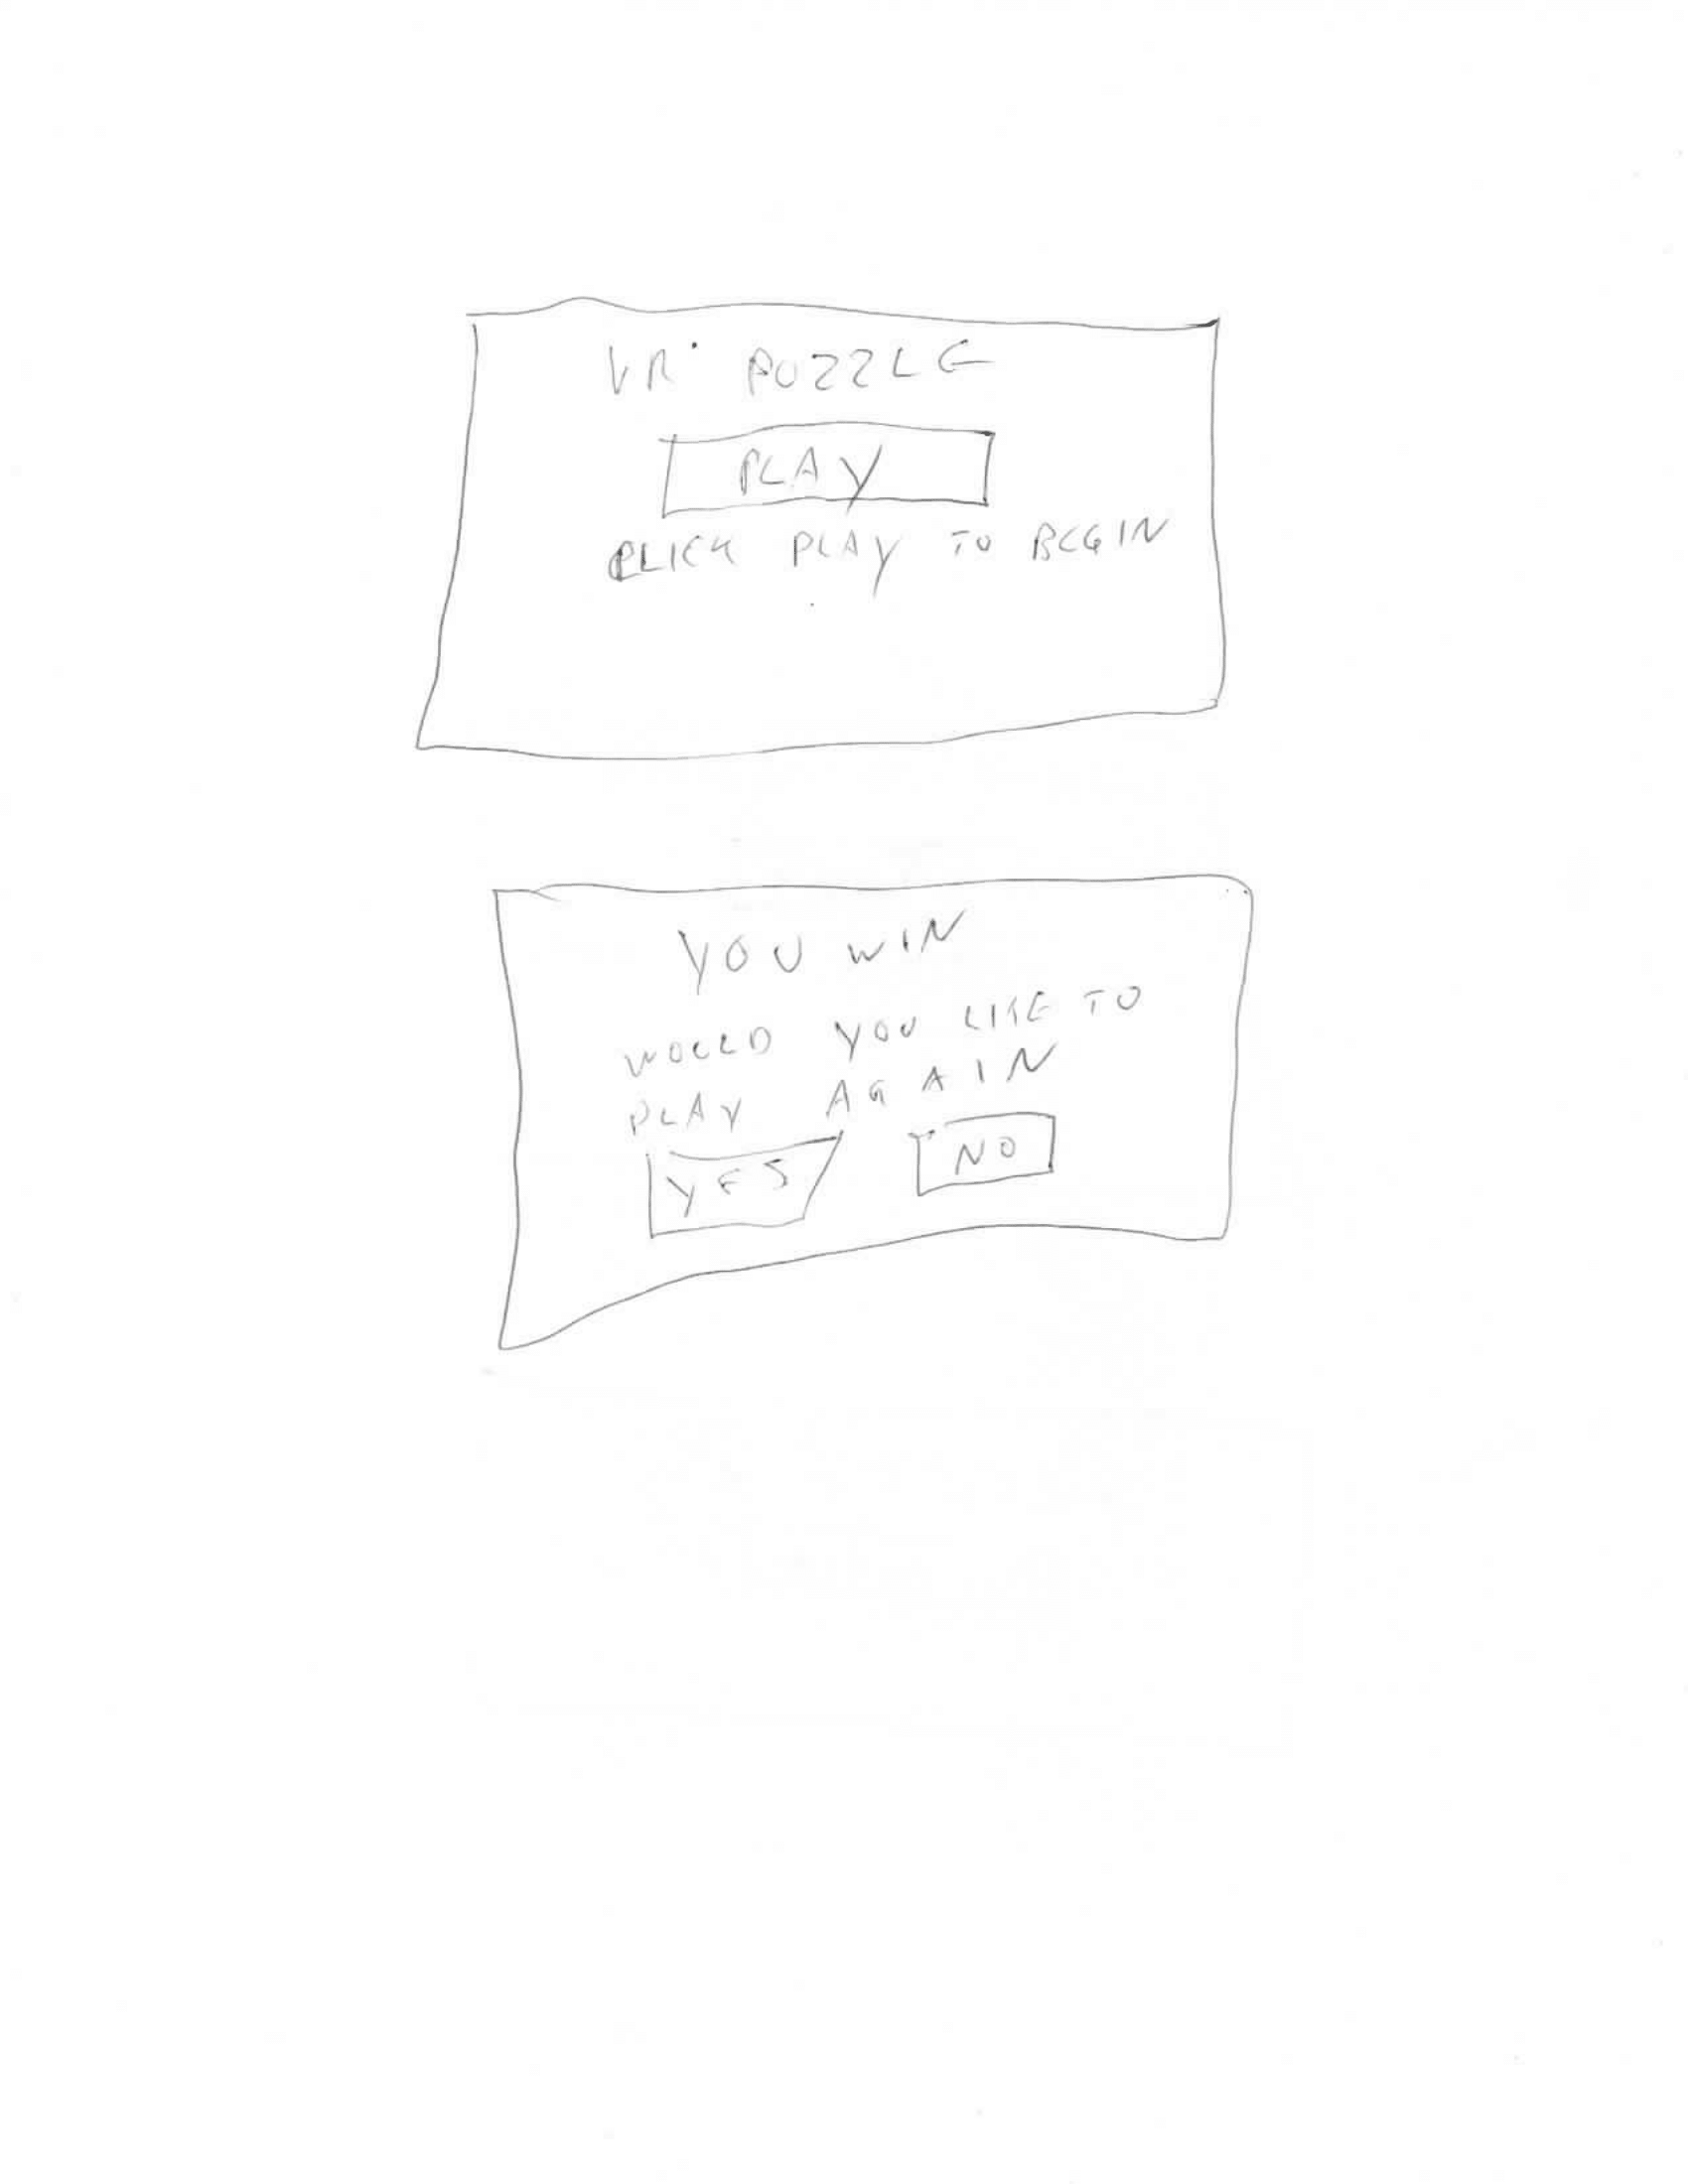 VR PUZZLE
PLAY
CLICK PLAY TO BEGIN
YOU WIN
WOULD YOU LIKE TO
PLAY AGAIN
YES NO